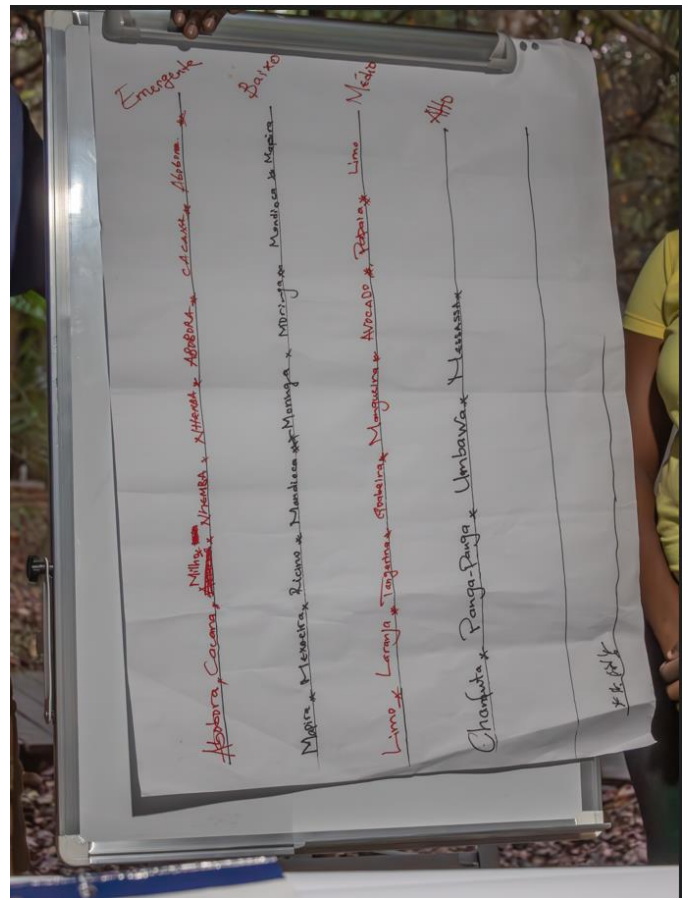 Emergente
Abobora x Cacana x Milho x Nhemba x Nhemba x ABOBORA x CACANA x Abobora x
Baixo
Mapira x Mexoeira x Ricino x Mandioca x Moringa x Moringa x Mandioca x Mapira
Médio
Limo x Laranja x Tangerina x Goabeira x Mangueira x AVOCADO x Papaia x Limo
Alto
Chanfuta x Panga-Panga x Umbawa x Messassa x